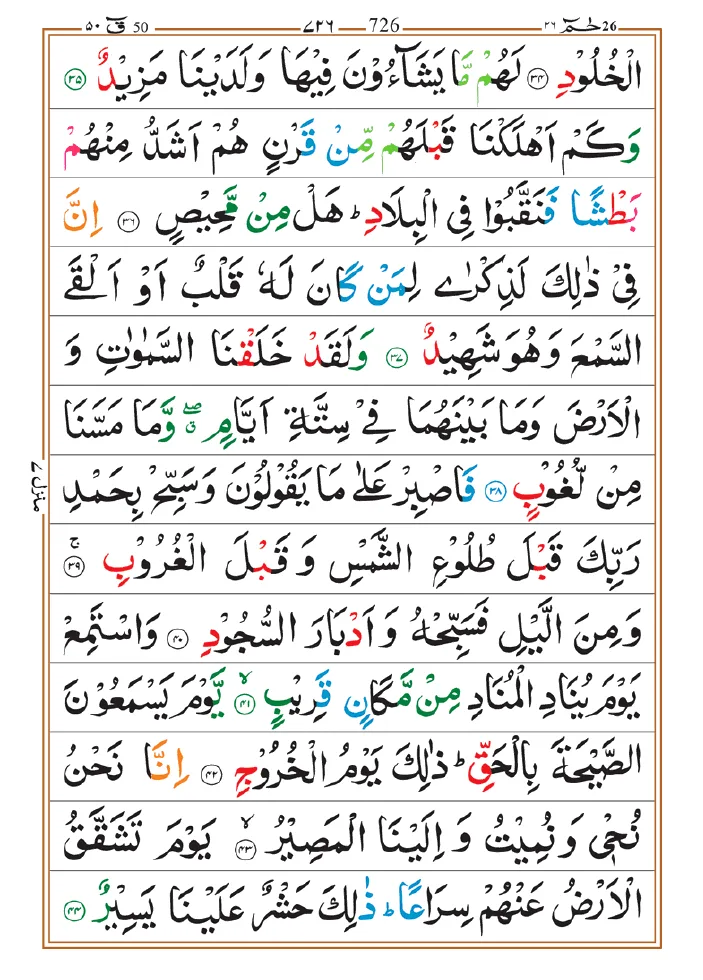 50 قٓ ۵۰ ٧٢٦ 726 26 حٰمٓ ٢٦
الْخُلُوْدِ ﴿۳۴﴾ لَهُمْ مَّا يَشَآءُوْنَ فِيْهَا وَلَدَيْنَا مَزِيْدٌ ﴿۳۵﴾
وَكَمْ اَهْلَكْنَا قَبْلَهُمْ مِّنْ قَرْنٍ هُمْ اَشَدُّ مِنْهُمْ
بَطْشًا فَنَقَّبُوْا فِى الْبِلَادِ ؕ هَلْ مِنْ مَّحِيْصٍ ﴿۳۶﴾ اِنَّ
فِىْ ذٰلِكَ لَذِكْرٰى لِمَنْ كَانَ لَهٗ قَلْبٌ اَوْ اَلْقَى
السَّمْعَ وَهُوَ شَهِيْدٌ ﴿۳۷﴾ وَلَقَدْ خَلَقْنَا السَّمٰوٰتِ وَ
الْاَرْضَ وَمَا بَيْنَهُمَا فِىْ سِتَّةِ اَيَّامٍ ۖ وَّمَا مَسَّنَا
مِنْ لُّغُوْبٍ ﴿۳۸﴾ فَاصْبِرْ عَلٰى مَا يَقُوْلُوْنَ وَسَبِّحْ بِحَمْدِ
رَبِّكَ قَبْلَ طُلُوْعِ الشَّمْسِ وَقَبْلَ الْغُرُوْبِ ۚ ﴿۳۹﴾
وَمِنَ الَّيْلِ فَسَبِّحْهُ وَاَدْبَارَ السُّجُوْدِ ﴿۴۰﴾ وَاسْتَمِعْ
يَوْمَ يُنَادِ الْمُنَادِ مِنْ مَّكَانٍ قَرِيْبٍ ۙ ﴿۴۱﴾ يَّوْمَ يَسْمَعُوْنَ
الصَّيْحَةَ بِالْحَقِّ ؕ ذٰلِكَ يَوْمُ الْخُرُوْجِ ﴿۴۲﴾ اِنَّا نَحْنُ
نُحْىٖ وَنُمِيْتُ وَاِلَيْنَا الْمَصِيْرُ ۙ ﴿۴۳﴾ يَوْمَ تَشَقَّقُ
الْاَرْضُ عَنْهُمْ سِرَاعًا ؕ ذٰلِكَ حَشْرٌ عَلَيْنَا يَسِيْرٌ ﴿۴۴﴾
منزل ۷